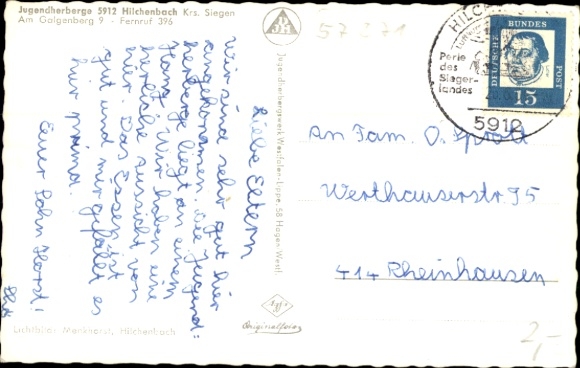 Jugendherberge 5912 Hilchenbach Krs. Siegen
Am Galgenberge 9 - Fernruf 396
Liebe Eltern
Wir sind sehr gut hier
angekommen. Die Jugend=
herberge liegt an einem
Hang. Wir haben eine
herrliche Aussicht von
hier. Das Essen ist
gut und mir gefällt es
hier prima.
Euer Sohn Horst!
Lichtbild: Menkhorst, Hilchenbach
DJH
Jugendherbergswerk Westfalen-Lippe, 58 Hagen-Westf.
Agfa
Originalfoto
57 271
Perle
des
Sieger-
landes
5912
DEUTSCHE
BUNDES
POST
15
An Fam. O.
Werthauserstr 95
414 Rheinhausen
2,-